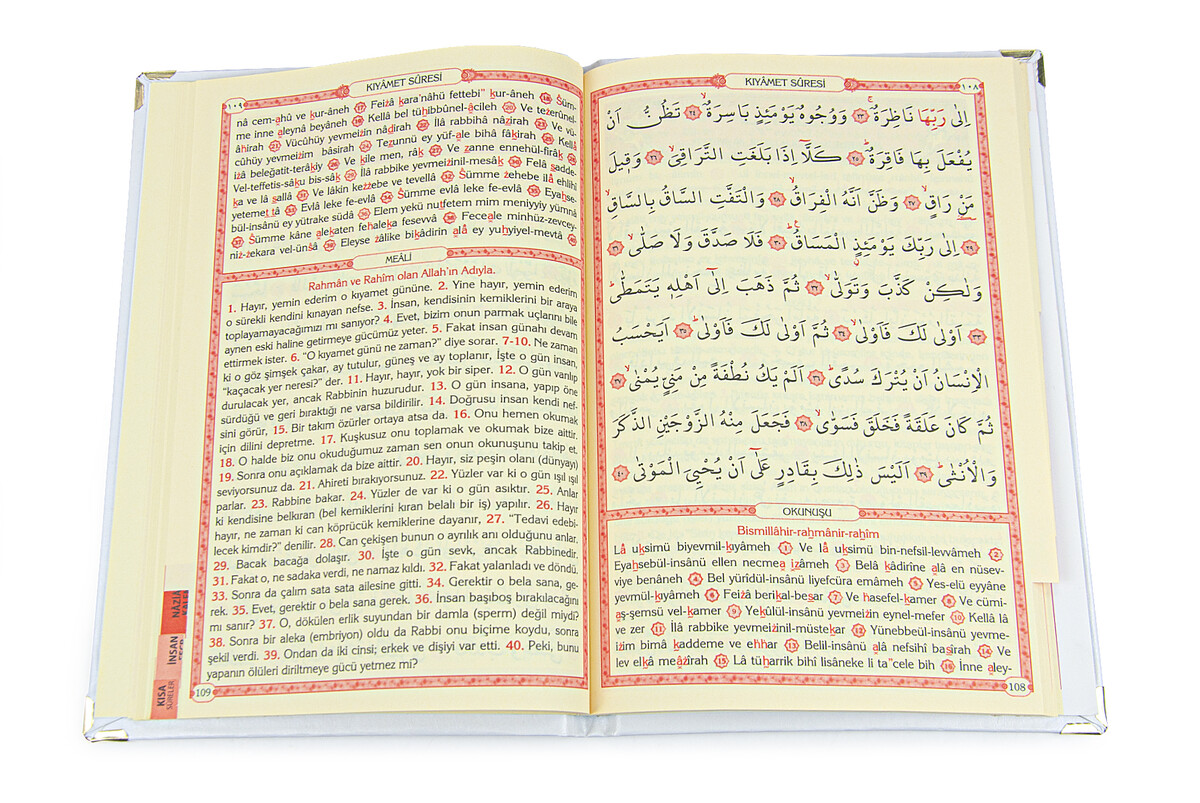 KIYÂMET SÛRESİ
١٠٨
اِلٰى رَبِّهَا نَاظِرَةٌۚ ﴿٢٣﴾ وَوُجُوهٌ يَوْمَئِذٍ بَاسِرَةٌۙ ﴿٢٤﴾ تَظُنُّ اَنْ
يُفْعَلَ بِهَا فَاقِرَةٌۜ ﴿٢٥﴾ كَلَّٓا اِذَا بَلَغَتِ التَّرَاقِيَۙ ﴿٢٦﴾ وَق۪يلَ
مَنْ رَاقٍۙ ﴿٢٧﴾ وَظَنَّ اَنَّهُ الْفِرَاقُۙ ﴿٢٨﴾ وَالْتَفَّتِ السَّاقُ بِالسَّاقِۙ
﴿٢٩﴾ اِلٰى رَبِّكَ يَوْمَئِذٍ الْمَسَاقُۜ ﴿٣٠﴾ فَلَا صَدَّقَ وَلَا صَلّٰىۙ ﴿٣١﴾
وَلٰكِنْ كَذَّبَ وَتَوَلّٰىۙ ﴿٣٢﴾ ثُمَّ ذَهَبَ اِلٰٓى اَهْلِه۪ يَتَمَطّٰىۜ
﴿٣٣﴾ اَوْلٰى لَكَ فَاَوْلٰىۙ ﴿٣٤﴾ ثُمَّ اَوْلٰى لَكَ فَاَوْلٰىۜ ﴿٣٥﴾ اَيَحْسَبُ
الْاِنْسَانُ اَنْ يُتْرَكَ سُدًىۜ ﴿٣٦﴾ اَلَمْ يَكُ نُطْفَةً مِنْ مَنِيٍّ يُمْنٰىۙ ﴿٣٧﴾
ثُمَّ كَانَ عَلَقَةً فَخَلَقَ فَسَوّٰىۙ ﴿٣٨﴾ فَجَعَلَ مِنْهُ الزَّوْجَيْنِ الذَّكَرَ
وَالْاُنْثٰىۜ ﴿٣٩﴾ اَلَيْسَ ذٰلِكَ بِقَادِرٍ عَلٰٓى اَنْ يُحْيِيَ الْمَوْتٰى ﴿٤٠﴾
OKUNUŞU
Bismillâhir-rahmânir-rahîm
Lâ uksimü biyevmil-kıyâmeh (1) Ve lâ uksimü bin-nefsil-levvâmeh (2)
Eyahsebül-insânü ellen necmea izâmeh (3) Belâ kâdirîne alâ en nüsev-
viye benâneh (4) Bel yürîdül-insânü liyefcüra emâmeh (5) Yes-elü eyyâne
yevmül-kıyâmeh (6) Feizâ berikal-besar (7) Ve hasefel-kamer (8) Ve cümi-
aş-şemsü vel-kamer (9) Yekûlül-insânü yevmeizin eynel-mefer (10) Kellâ lâ
ve zer (11) İlâ rabbike yevmeizinil-müstekar (12) Yünebbeül-insânü yevme-
izim bimâ kaddeme ve ehhar (13) Belil-insânü alâ nefsihî basîrah (14) Ve
lev elkâ meâzîrah (15) Lâ tüharrik bihî lisâneke li ta"cele bih (16) İnne aley-
108
KIYÂMET SÛRESİ
١٠٩
nâ cem-ahû ve kur-âneh (17) Feizâ kara'nâhü fettebi" kur-âneh (18) Süm-
me inne aleynâ beyâneh (19) Kellâ bel tühibbûnel-âcileh (20) Ve tezerûnel-
âhirah (21) Vücûhüy yevmeizin nâdırah (22) İlâ rabbihâ nâzirah (23) Ve vü-
cûhüy yevmeizim bâsirah (24) Tezunnü ey yüf-ale bihâ fâkirah (25) Kellâ
izâ beleğatit-terâkıy (26) Ve kîle men, râk (27) Ve zanne ennehül-firâk (28)
Vel-teffetis-sâku bis-sâk (29) İlâ rabbike yevmeizinil-mesâk (30) Felâ sadde-
ka ve lâ sallâ (31) Ve lâkin kezzebe ve tevellâ (32) Sümme zehebe ilâ ehlihî
yetemettâ (33) Evlâ leke fe-evlâ (34) Sümme evlâ leke fe-evlâ (35) Eyahse-
bül-insânü ey yütrake südâ (36) Elem yekü nutfetem mim meniyyiy yümnâ
(37) Sümme kâne alekaten fehaleka fesevvâ (38) Feceale minhüz-zevcey-
niz-zekara vel-ünsâ (39) Eleyse zâlike bikâdirin alâ ey yuhyiyel-mevtâ (40)
MEÂLİ
Rahmân ve Rahîm olan Allah'ın Adıyla.
1. Hayır, yemin ederim o kıyamet gününe. 2. Yine hayır, yemin ederim
o sürekli kendini kınayan nefse. 3. İnsan, kendisinin kemiklerini bir araya
toplayamayacağımızı mı sanıyor? 4. Evet, bizim onun parmak uçlarını bile
aynen eski haline getirmeye gücümüz yeter. 5. Fakat insan günahı devam
ettirmek ister. 6. "O kıyamet günü ne zaman?" diye sorar. 7-10. Ne zaman
ki o göz şimşek çakar, ay tutulur, güneş ve ay toplanır, İşte o gün insan,
"kaçacak yer neresi?" der. 11. Hayır, hayır, yok bir siper. 12. O gün vanlıp
durulacak yer, ancak Rabbinin huzurudur. 13. O gün insana, yapıp öne
sürdüğü ve geri bıraktığı ne varsa bildirilir. 14. Doğrusu insan kendi nef-
sini görür, 15. Bir takım özürler ortaya atsa da. 16. Onu hemen okumak
için dilini depretme. 17. Kuşkusuz onu toplamak ve okumak bize aittir.
18. O halde biz onu okuduğumuz zaman sen onun okunuşunu takip et.
19. Sonra onu açıklamak da bize aittir. 20. Hayır, siz peşin olanı (dünyayı)
seviyorsunuz da. 21. Ahireti bırakıyorsunuz. 22. Yüzler var ki o gün ışıl ışıl
parlar. 23. Rabbine bakar. 24. Yüzler de var ki o gün asıktır. 25. Anlar
ki kendisine belkıran (bel kemiklerini kıran belalı bir iş) yapılır. 26. Hayır
hayır, ne zaman ki can köprücük kemiklerine dayanır, 27. "Tedavi edebi-
lecek kimdir?" denilir. 28. Can çekişen bunun o ayrılık anı olduğunu anlar.
29. Bacak bacağa dolaşır. 30. İşte o gün sevk, ancak Rabbinedir.
31. Fakat o, ne sadaka verdi, ne namaz kıldı. 32. Fakat yalanladı ve döndü.
33. Sonra da çalım sata sata ailesine gitti. 34. Gerektir o bela sana, ge-
rek. 35. Evet, gerektir o bela sana gerek. 36. İnsan başıboş bırakılacağını
mı sanır? 37. O, dökülen erlik suyundan bir damla (sperm) değil miydi?
38. Sonra bir aleka (embriyon) oldu da Rabbi onu biçime koydu, sonra
şekil verdi. 39. Ondan da iki cinsi; erkek ve dişiyi var etti. 40. Peki, bunu
yapanın ölüleri diriltmeye gücü yetmez mi?
109
NÂZİA
İNSAN
KISA
SÛRELER